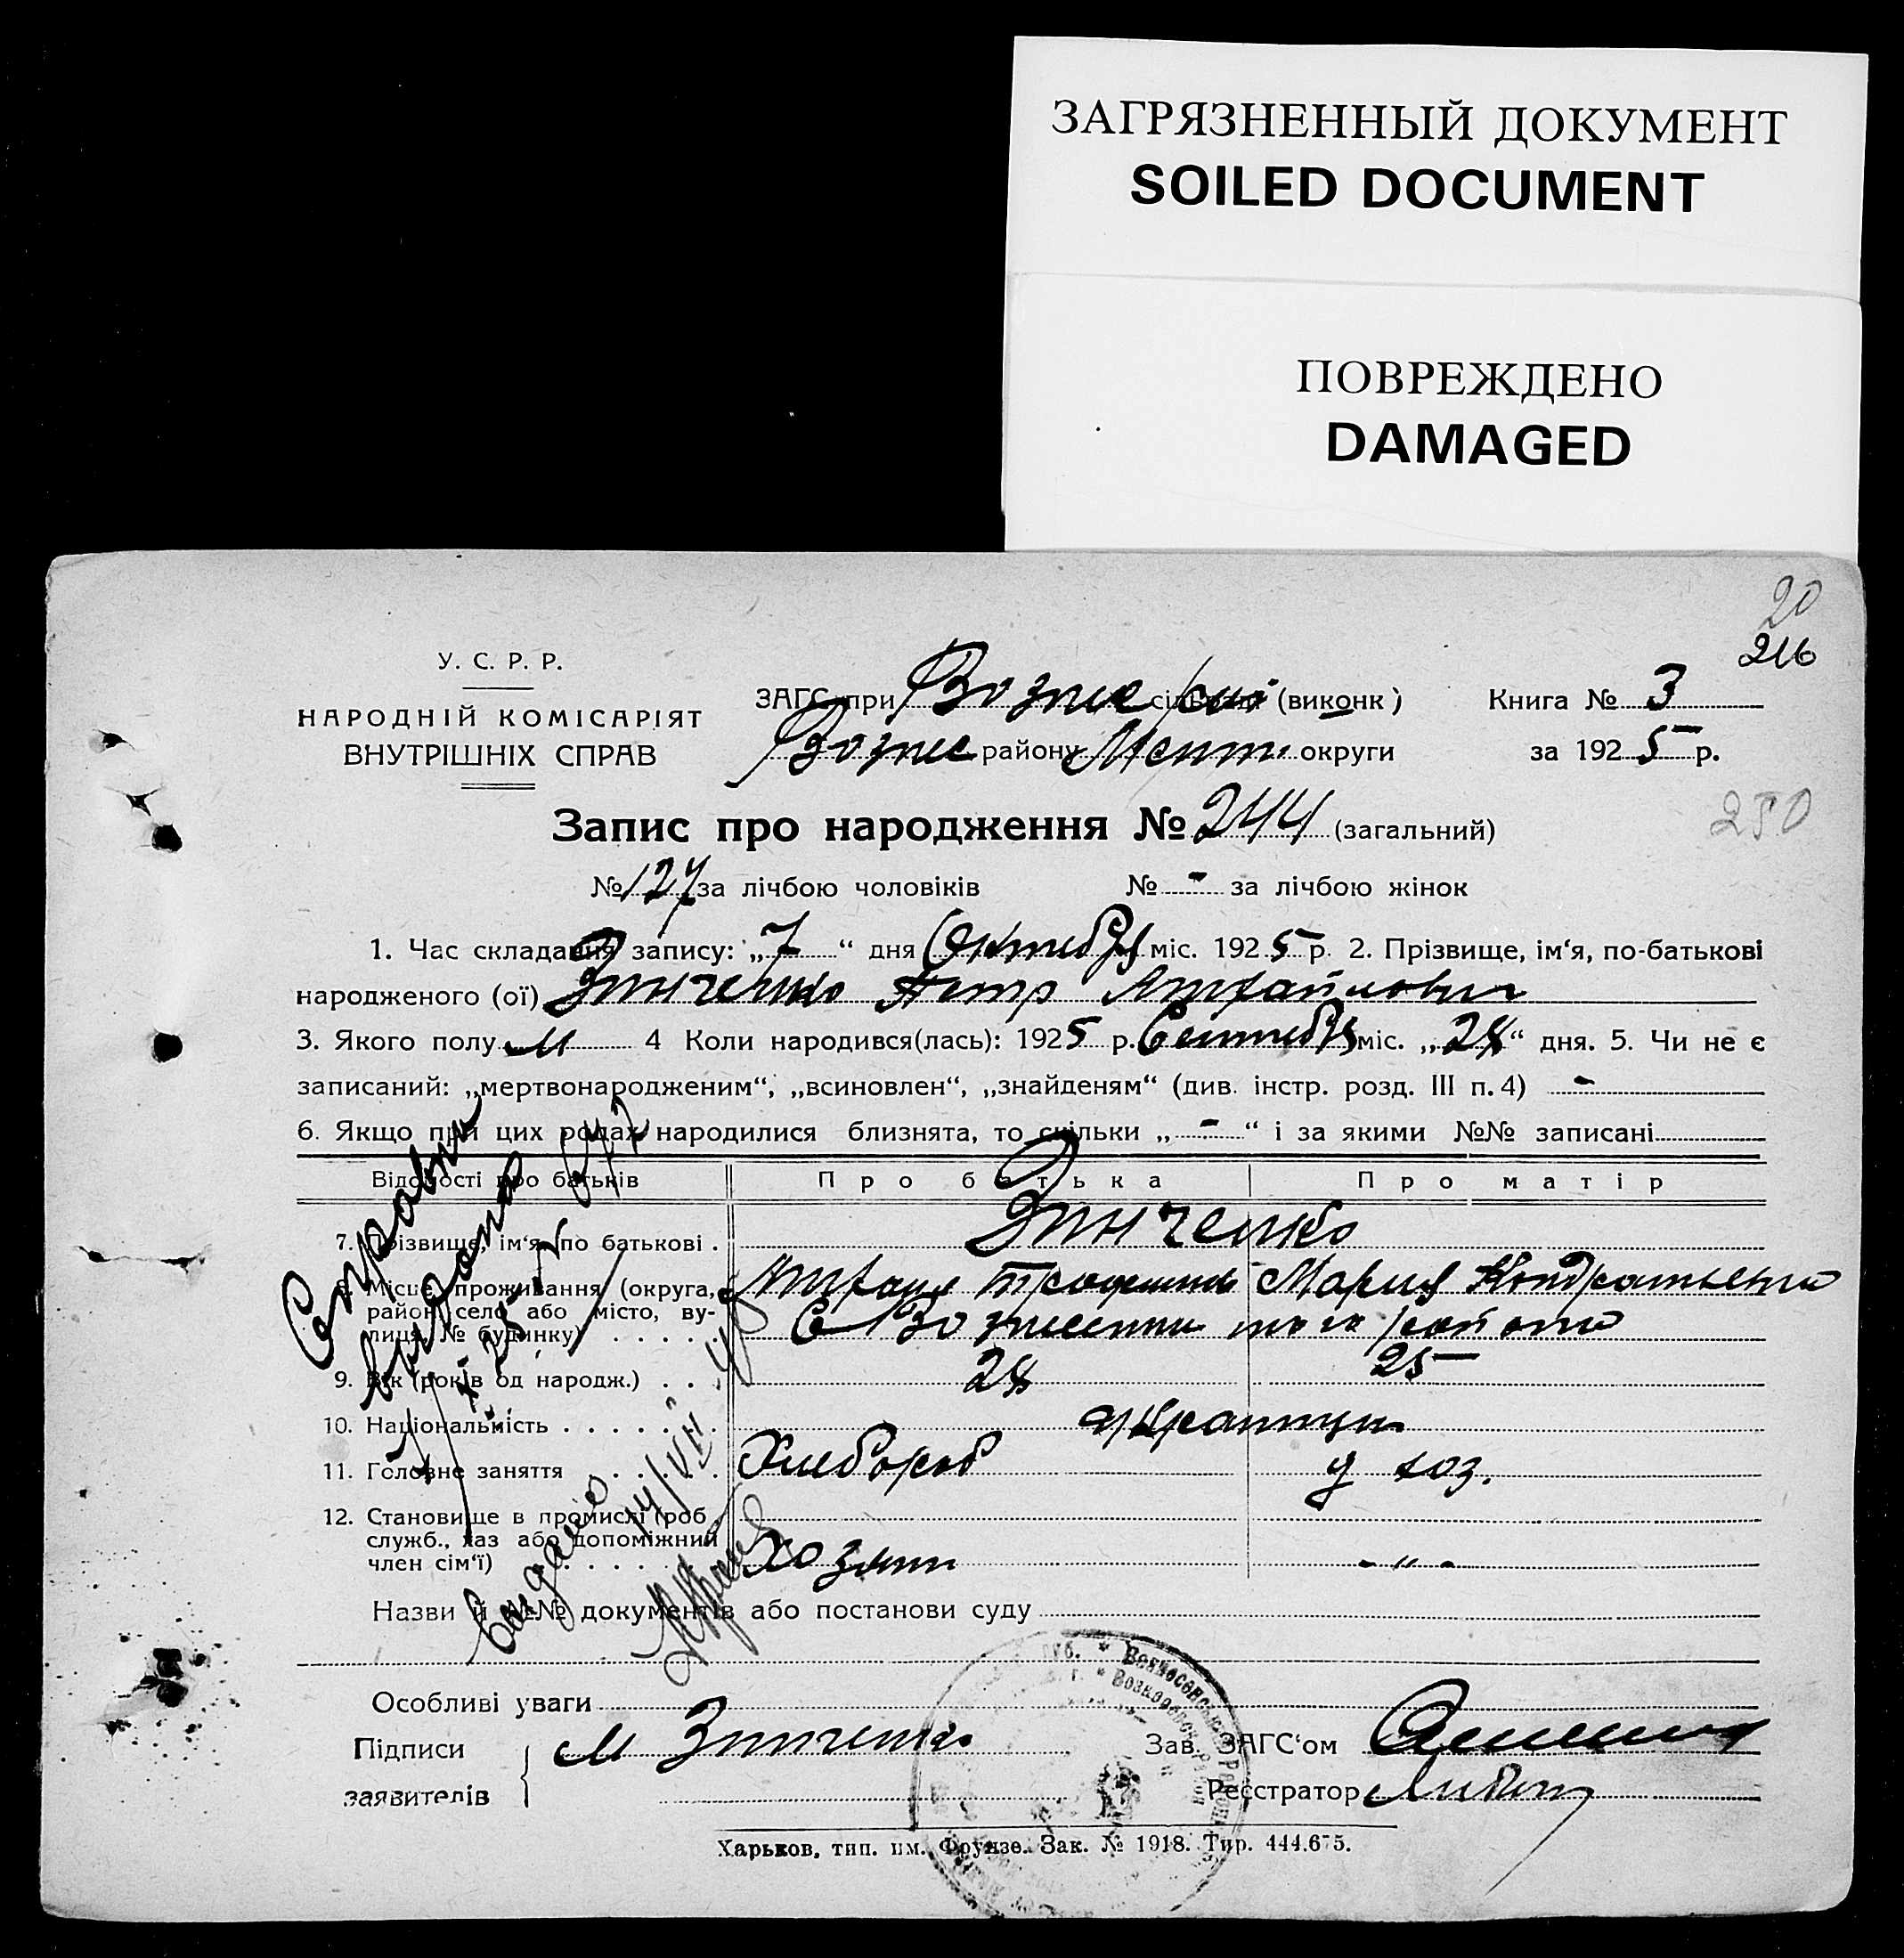 ЗАГРЯЗНЕННЫЙ ДОКУМЕНТ
SOILED DOCUMENT
ПОВРЕЖДЕНО
DAMAGED
20
216
У. С. Р. Р.
НАРОДНІЙ КОМІСАРІЯТ
ВНУТРІШНІХ СПРАВ
ЗАГС при Вознес (виконк) Книга № 3
Вознес району Мелит округи за 1925 р.
Запис про народження № 244 (загальний)
250
№ 127 за лічбою чоловіків № - за лічбою жінок
1. Час складання запису: „7“ дня Октября міс. 1925 р. 2. Прізвище, ім‘я, по-батькові
народженого (ої) Зинченко Петр Михайлович
3. Якого полу м 4 Коли народився(лась): 1925 р. Сентября міс. „28“ дня. 5. Чи не є
записаний: „мертвонародженим“, „всиновлен“, „знайденям“ (див. інстр. розд. III п. 4) -
6. Якщо при цих родах народилися близнята, то скільки „-“ і за якими №№ записані
Відомості про батьків Про батька Про матір
7. Прізвище, ім‘я, по батькові . Зинченко
Михаил Мария Кондратьевна
8. Місце проживання (округа, район, село або місто, вулиця, № будинку) . . . . . С Вознесенки того района
9. Вік (років од народж.) . . . 28 25
10. Національність . . . . . . . украинцы
11. Головне заняття . . . . . Хлебороб д хоз.
12. Становище в промислі (роб.,
служб., хаз або допоміжний
член сім‘ї) . . . . . . . Хозяин - „ -
Справка
выдана
Выдано 14/VII
Назви й №№ документів або постанови суду
Особливі уваги
Підписи М Зинченко Зав. ЗАГС‘ом
заявителів Реєстратор
Харьков, тип. им. Фрунзе. Зак. № 1918. Тир. 444.675.